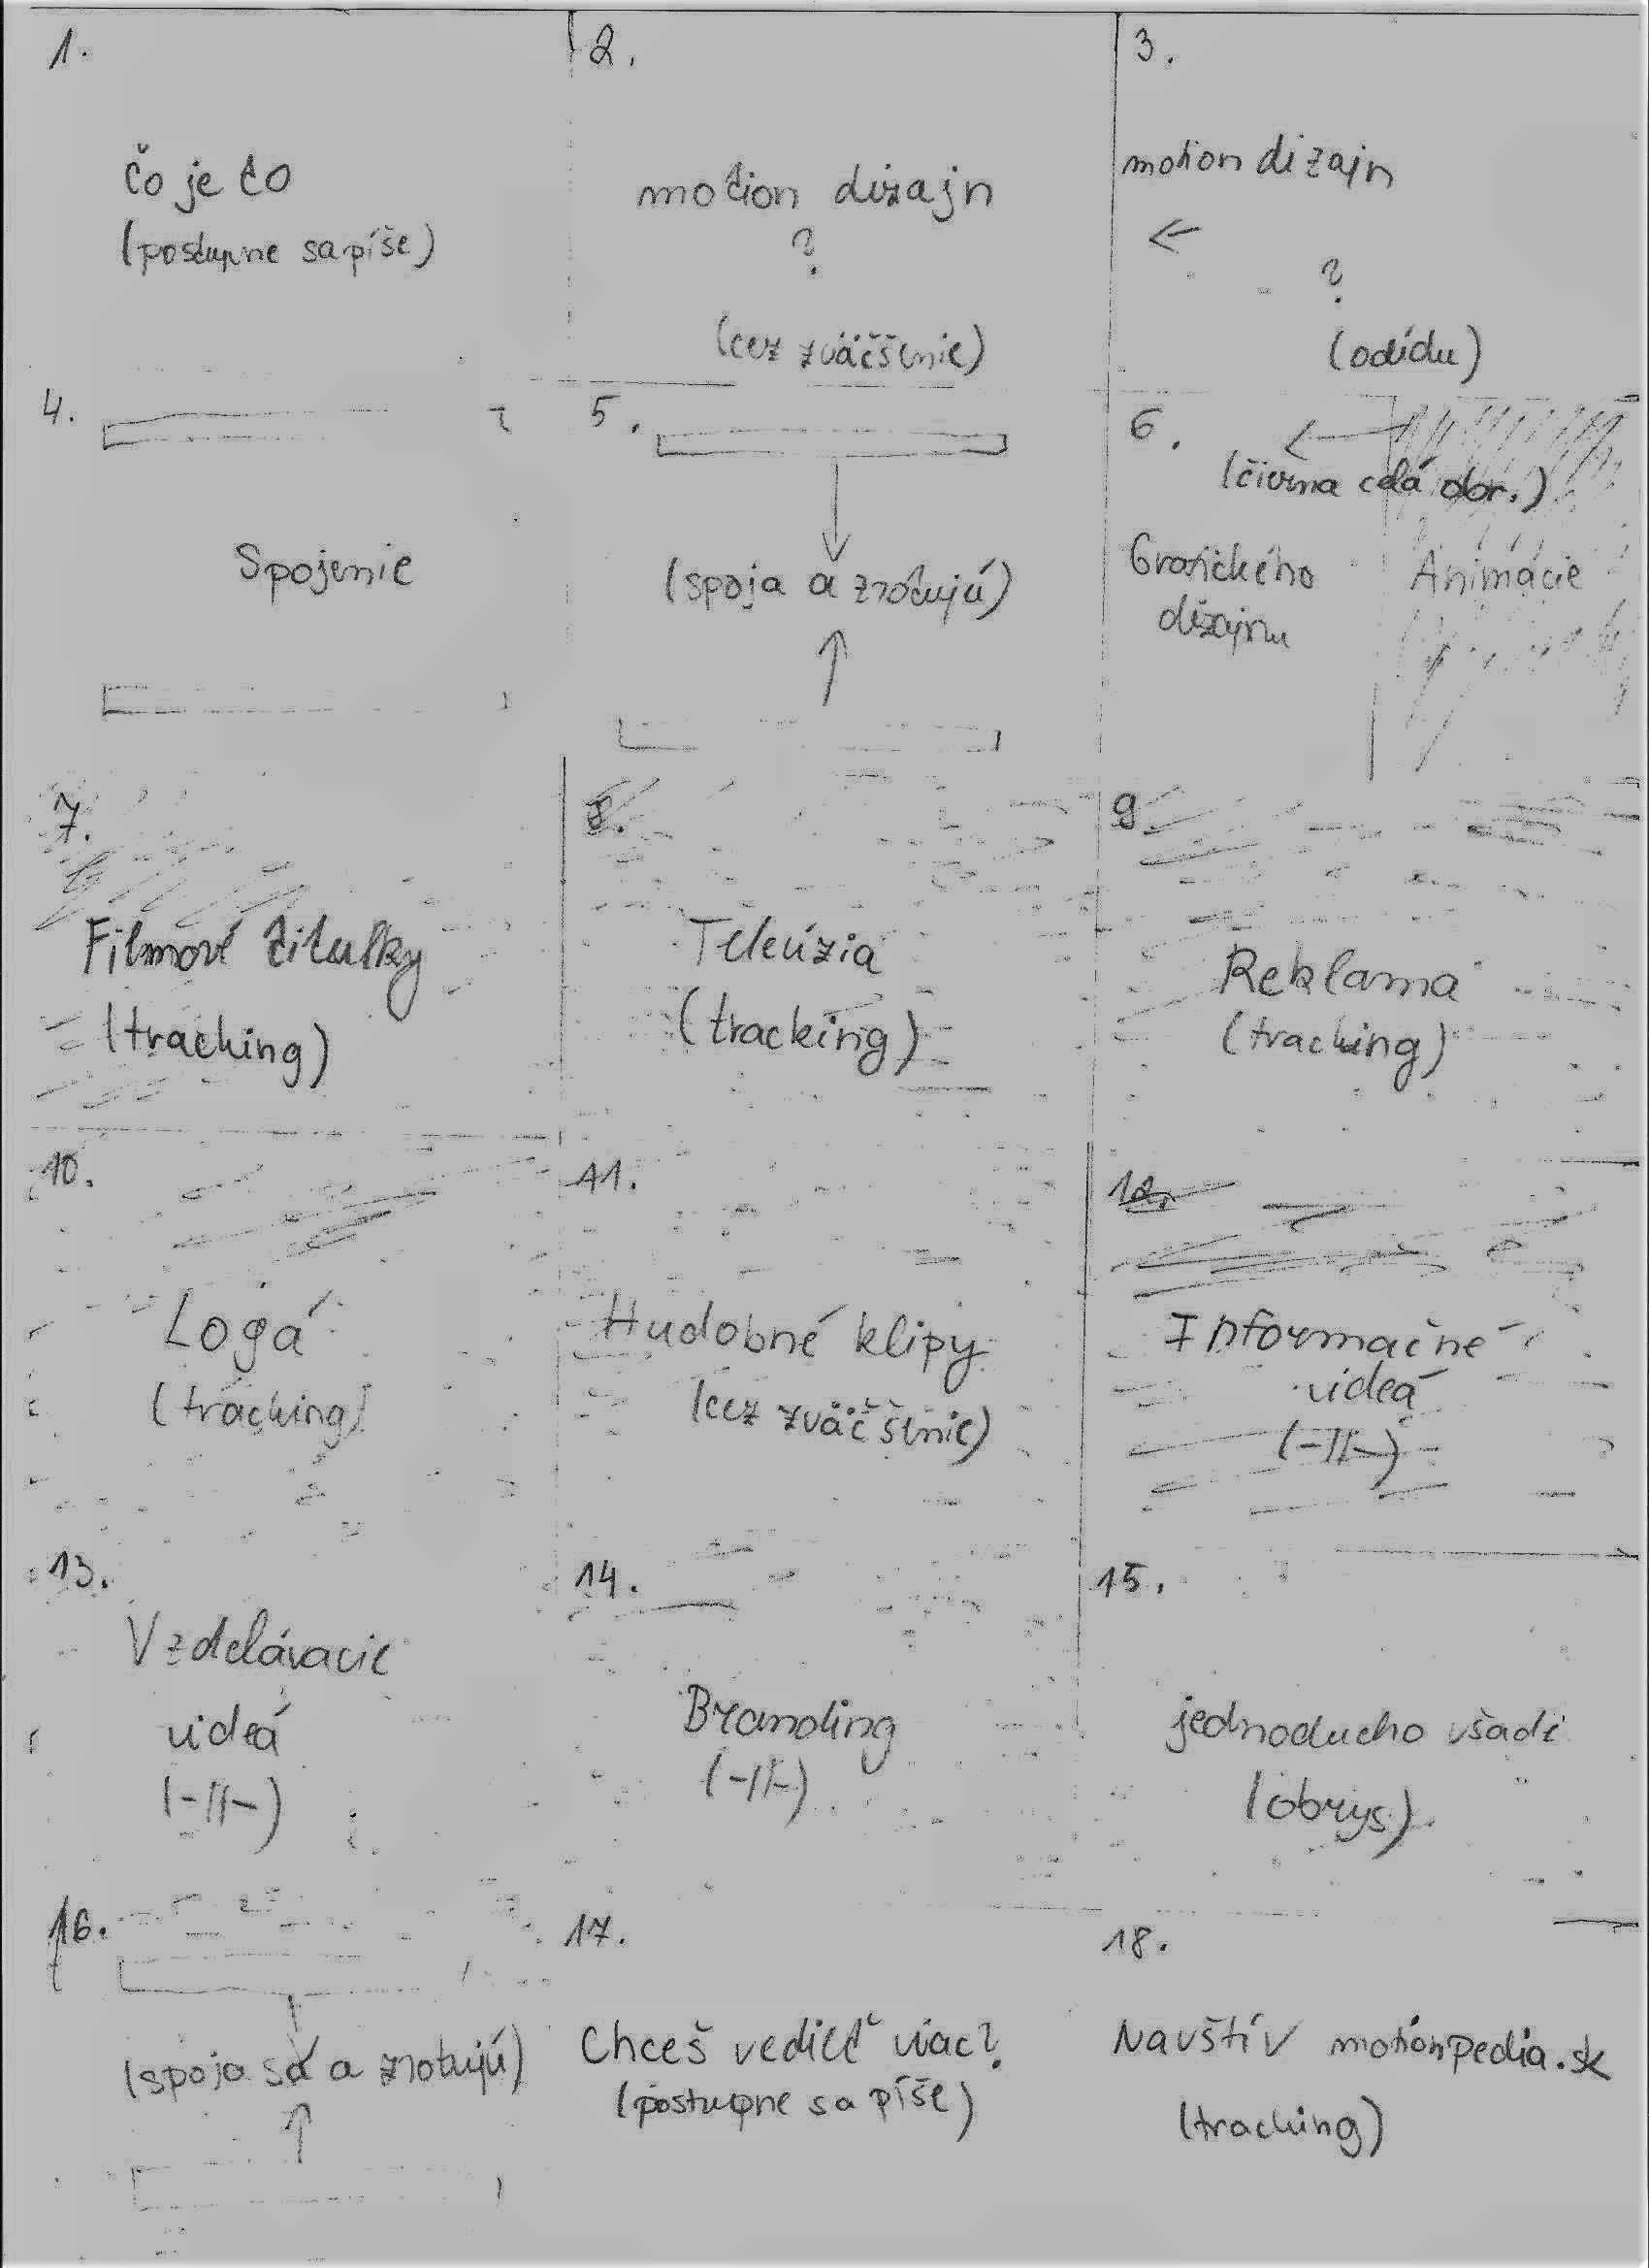 1.
čo je to
(postupne sa píše)
2.
motion dizajn
?
(cez zväčšenie)
3.
motion dizajn
?
(odídu)
4.
Spojenie
5.
(spoja a zrotujú)
6.
(čierna celá obr.)
Grafického
dizajnu
Animácie
7.
Filmové titulky
(tracking)
8.
Televízia
(tracking)
9.
Reklama
(tracking)
10.
Logá
(tracking)
11.
Hudobné klipy
(cez zväčšenie)
12.
Informačné
videá
(-||-)
13.
Vzdelávacie
videá
(-||-)
14.
Branding
(-||-)
15.
jednoducho všade
(obrys)
16.
(spoja sa a zrotujú)
17.
Chceš vedieť viac?
(postupne sa píše)
18.
Navštív motionpedia.sk
(tracking)